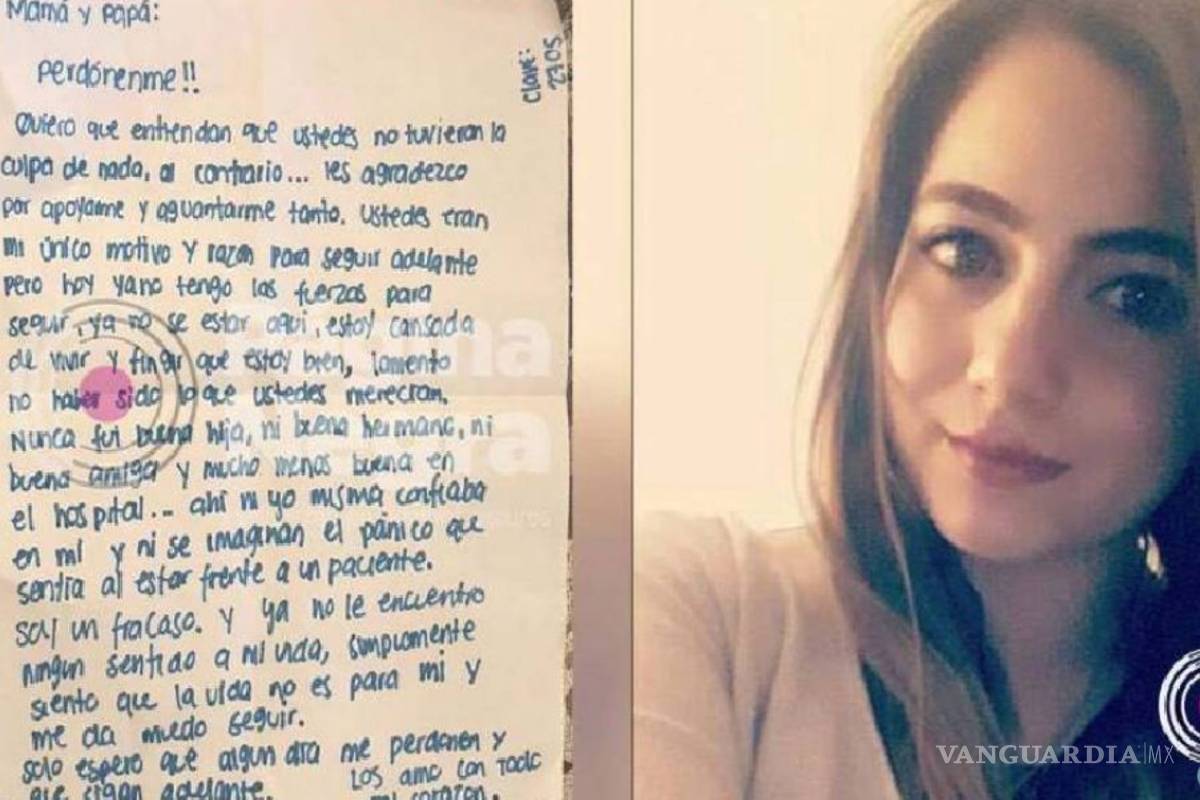 Mamá y Papá:
Clave:
2705
Perdónenme!!
Quiero que entiendan que ustedes no tuvieron la
culpa de nada, al contrario... les agradezco
por apoyarme y aguantarme tanto. Ustedes eran
mi único motivo y razón para seguir adelante
pero hoy ya no tengo las fuerzas para
seguir, ya no se estar aquí, estoy cansada
de vivir y fingir que estoy bien, lamento
no haber sido lo que ustedes merecían.
Nunca fui buena hija, ni buena hermana, ni
buena amiga y mucho menos buena en
el hospital... ahí ni yo misma confiaba
en mí y ni se imaginan el pánico que
sentía al estar frente a un paciente.
Soy un fracaso. Y ya no le encuentro
ningún sentido a mi vida, simplemente
siento que la vida no es para mi y
me da miedo seguir.
solo espero que algún día me perdonen y
que sigan adelante.
Los amo con todo
mi corazón.
VANGUARDIA|MX